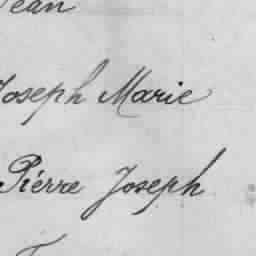 Jean
Joseph Marie
Pierre Joseph